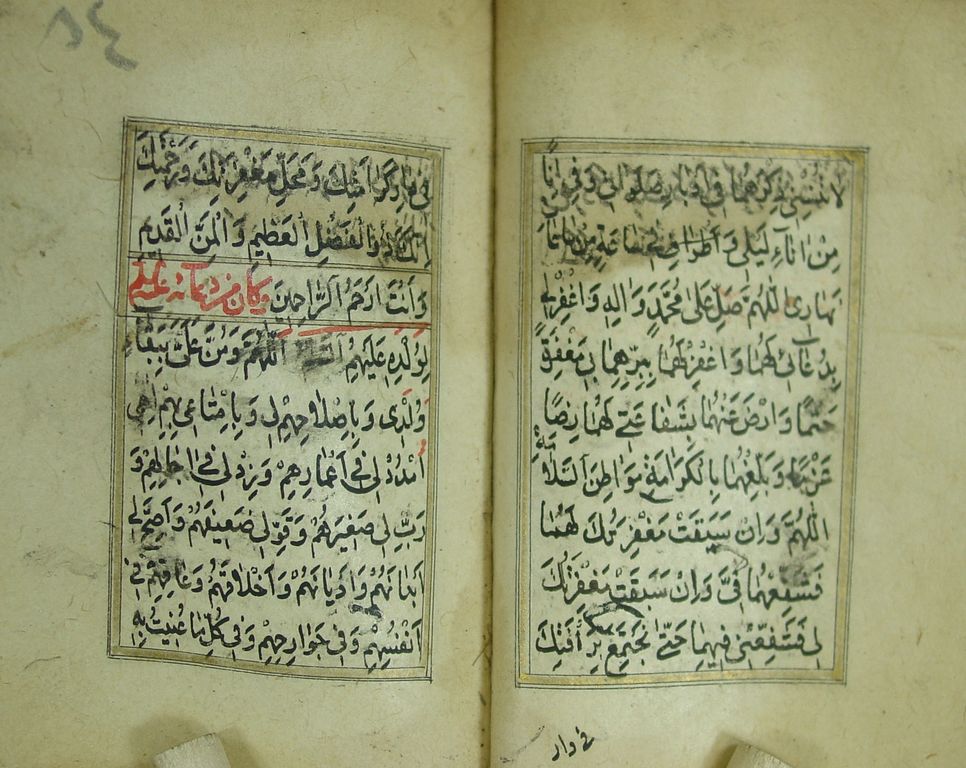 لَا تُنْسِنِي ذِكْرَهُمَا فِي اَدْبَارِ صَلَوَاتِي وَفِي اِنًا
مِنْ اٰنَاۤءِ لَيْلِي وَاَطْرَافِ سَاعَةٍ مِنْ سَاعَاتِ
نَهَارِي اَللّٰهُمَّ صَلِّ عَلٰى مُحَمَّدٍ وَاٰلِهِ وَاغْفِرْ لِي
بِدُعَاۤئِي لَهُمَا وَاغْفِرْ لَهُمَا بِبِرِّهِمَا بِي مَغْفِرَةً
حَتْمًا وَارْضَ عَنْهُمَا بِشَفَاعَتِي لَهُمَا رِضًا
عَزْمًا وَبَلِّغْهُمَا بِالْكَرَامَةِ مَوَاطِنَ السَّلَامَةِ
اَللّٰهُمَّ وَاِنْ سَبَقَتْ مَغْفِرَتُكَ لَهُمَا
فَشَفِّعْهُمَا فِيَّ وَاِنْ سَبَقَتْ مَغْفِرَتُكَ
لِي فَشَفِّعْنِي فِيهِمَا حَتّٰى نَجْتَمِعَ بِرَأْفَتِكَ
في دار
فِي دَارِ كَرَامَتِكَ وَمَحَلِّ مَغْفِرَتِكَ وَرَحْمَتِكَ
اِنَّكَ ذُو الْفَضْلِ الْعَظِيمِ وَالْمَنِّ الْقَدِيمِ
وَاَنْتَ اَرْحَمُ الرَّاحِمِينَ وَكَانَ مِنْ دُعَاۤئِهِ عَلَيْهِ
لِوُلْدِهِ عَلَيْهِمُ اَللّٰهُمَّ وَمُنَّ عَلَيَّ بِبَقَاۤءِ
وُلْدِي وَبِاِصْلَاحِهِمْ لِي وَبِاِمْتَاعِي بِهِمْ اِلٰهِي
اُمْدُدْ لِي فِي اَعْمَارِهِمْ وَزِدْ لِي فِي اٰجَالِهِمْ وَ
رَبِّ لِي صَغِيرَهُمْ وَقَوِّ لِي ضَعِيفَهُمْ وَاَصِحَّ لِي
اَبْدَانَهُمْ وَاَدْيَانَهُمْ وَاَخْلَاقَهُمْ وَعَافِهِمْ فِي
اَنْفُسِهِمْ وَفِي جَوَارِحِهِمْ وَفِي كُلِّ مَا عُنِيتُ بِهِ